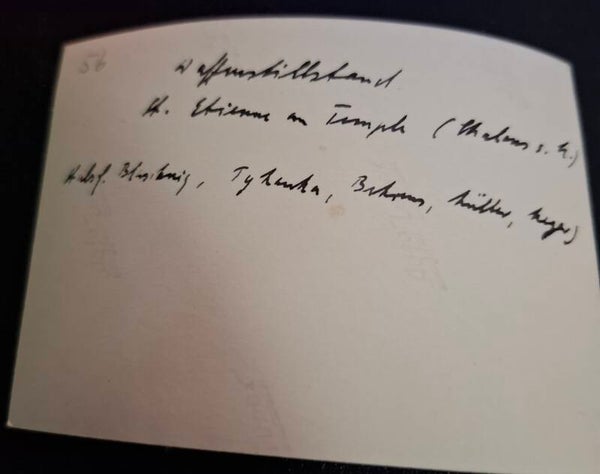 56
Waffenstillstand
St. Etienne au Temple (Chalons s. M.)
Tyhanka, Behrens, Müller, Meyer)